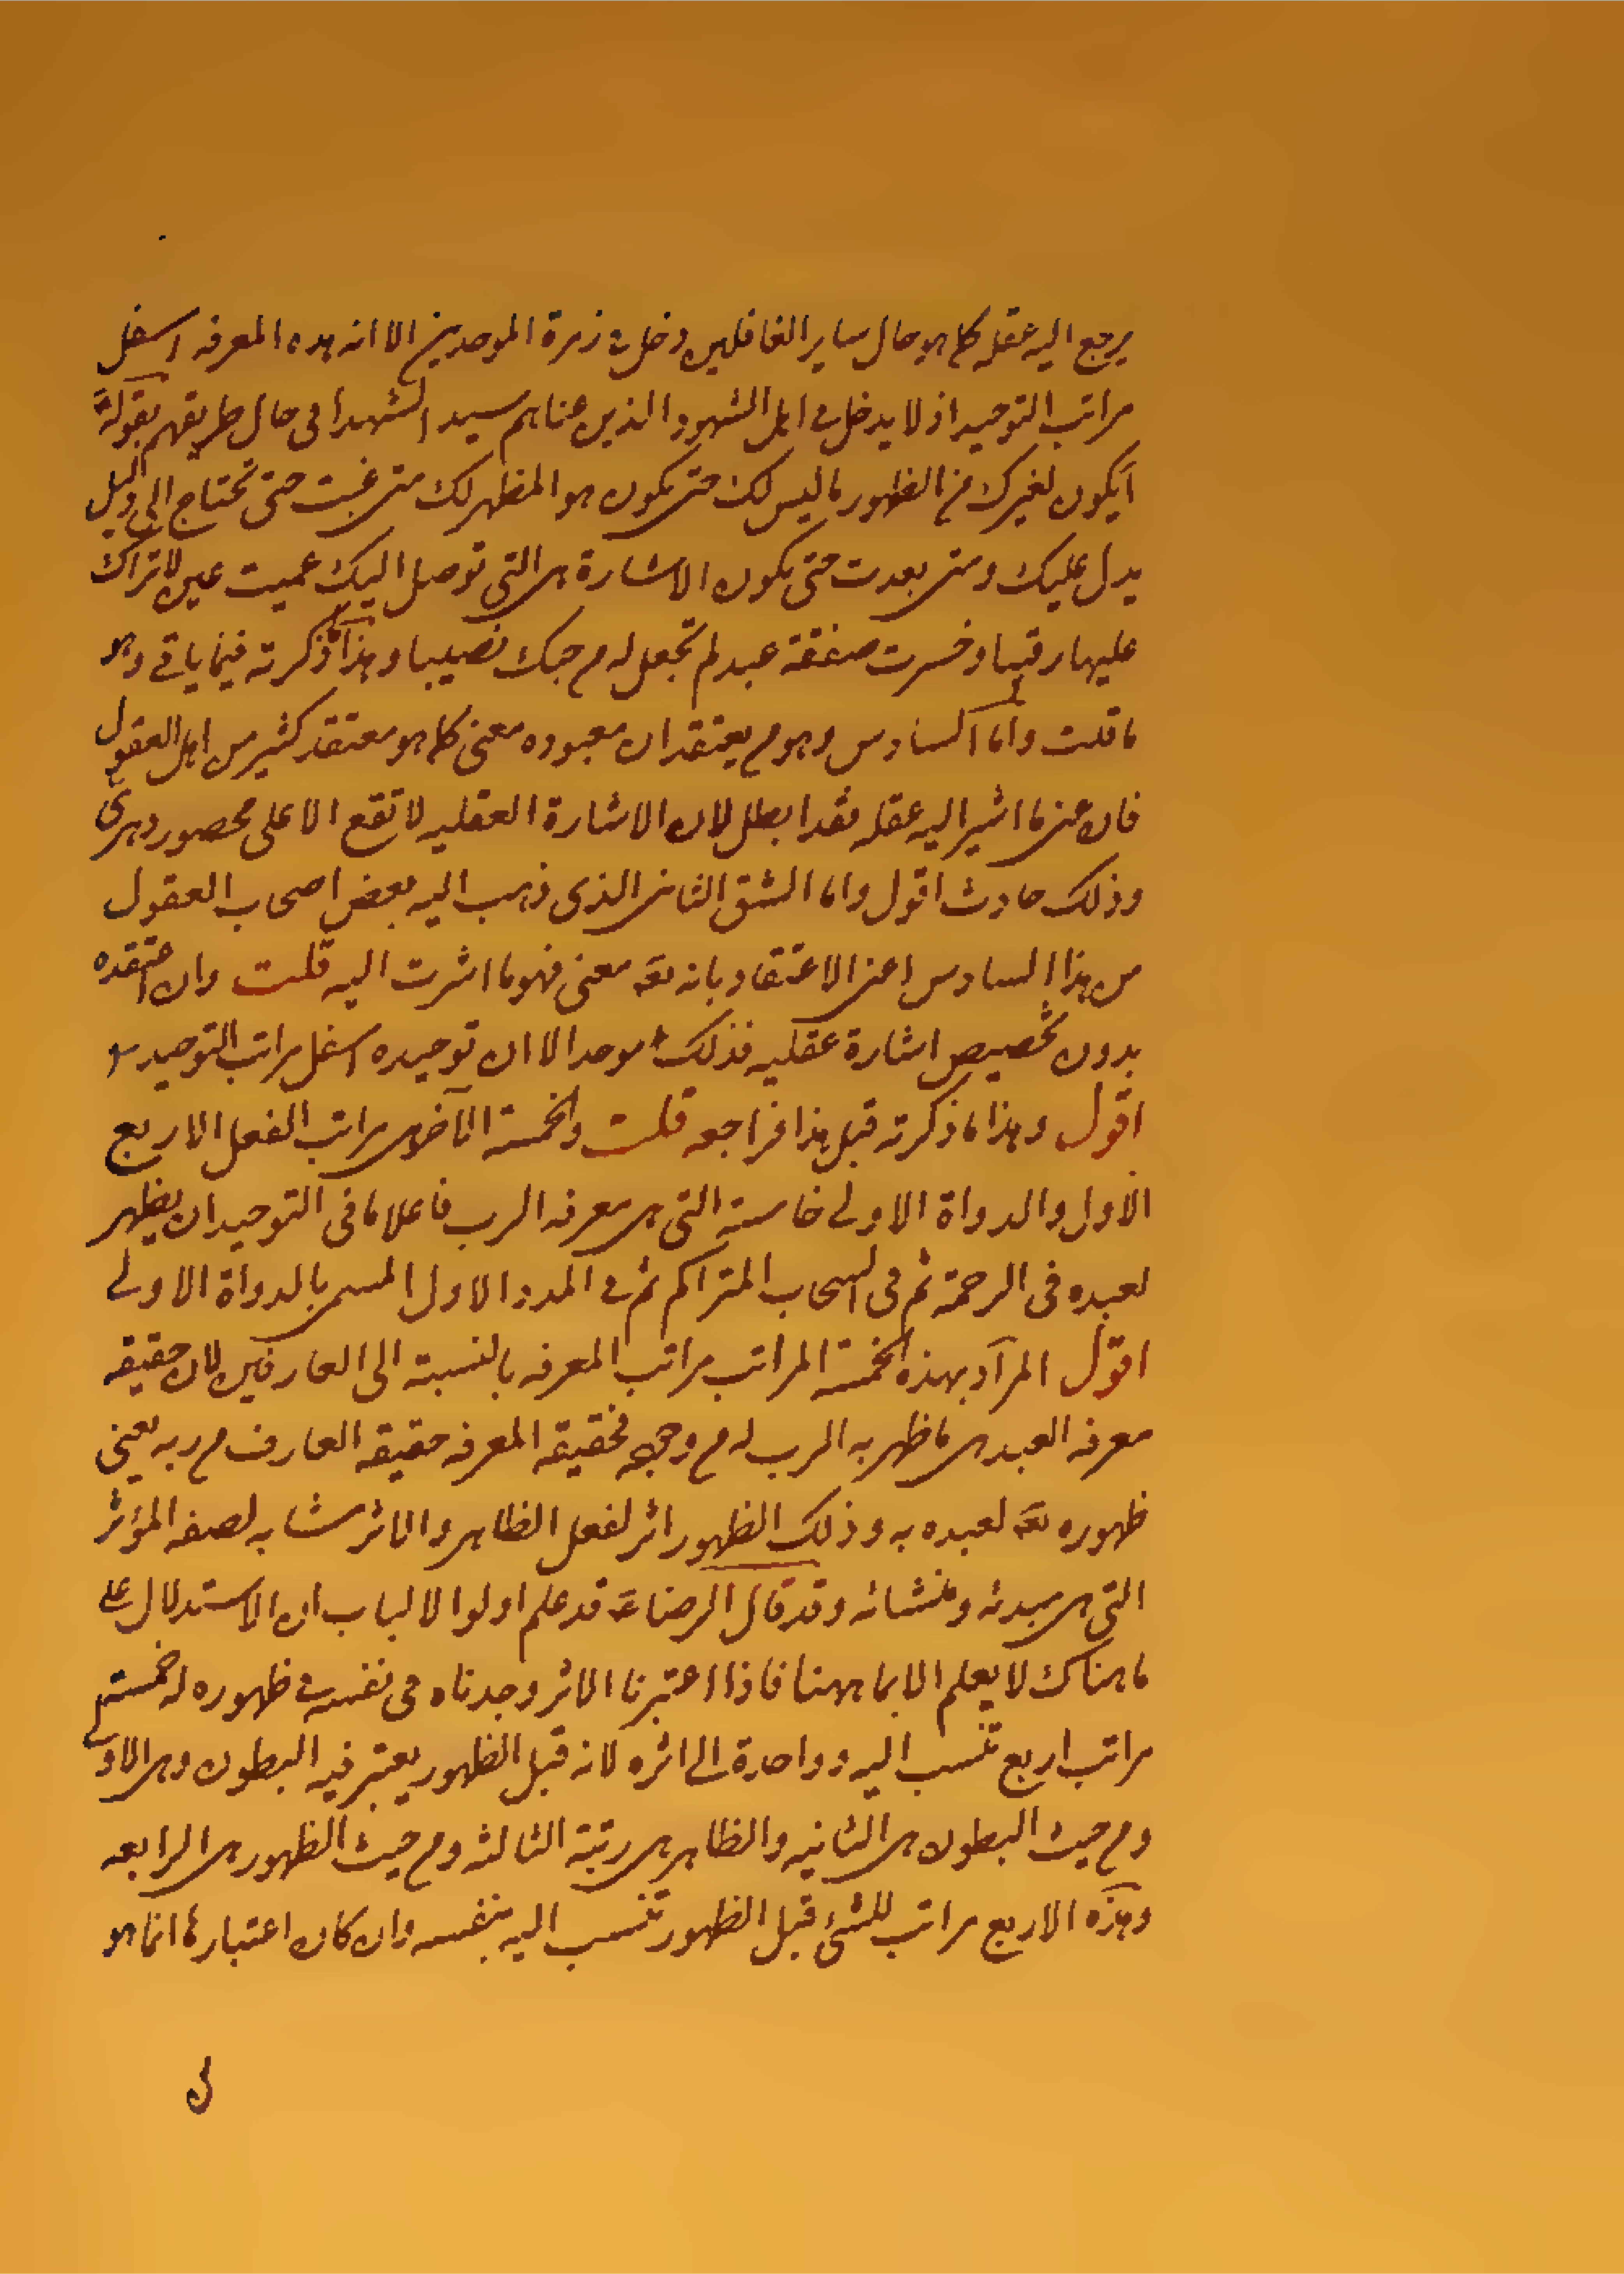 يرجع اليه عقله كما هو حال ساير الغافلين دخل في زمرة الموحدين الا انه بهذه المعرفه اسفل
مراتب التوحيد اذ لا يدخل في اهل الشهود الذين عناهم سيد الشهدا في حال طريقهم بقوله
أيكون لغيرك من الظهور ما ليس لك حتى يكون هو المظهر لك متى غبت حتى تحتاج الى دليل
يدل عليك ومتى بعدت حتى يكون الاشارة هي التى توصل اليك عميت عين لا تراك
عليها رقيبا وخسرت صفقة عبد لم تجعل له من حبك نصيبا وهذا ذكرته فيما ياتى وهو
ما قلت واما السادس وهو من يعتقد ان معبوده معنى كما هو معتقد كثير من اهل العقول
فان عنى ما اشير اليه عقله فقد ابطل لان الاشارة العقليه لا تقع الا على محصور دهرى
وذلك حادث اقول واما الشق الثانى الذى ذهب اليه بعض اصحاب العقول
من هذا السادس اعنى الاعتقاد بانه تعه معنى فهو ما اشرت اليه قلت وان اعتقده
بدون تخصيص اشارة عقليه فذلك موحد الا ان توحيده اسفل مراتب التوحيد
اقول وهذا ما ذكرته قبل هذا فراجعه قلت والخمسة الآخر هى مراتب الفعل الاربع
الاول والدواة الاولى خامسة التى هى معرفه الرب فاعلا ما فى التوحيد ان يظهر
لعبده فى الرحمة ثم فى السحاب المتراكم ثم فى المدد الاول المسمى بالدواة الاولى
اقول المراد بهذه الخمسة المراتب مراتب المعرفه بالنسبة الى العارفين لان حقيقه
معرفه العبد هى ما ظهر به الرب له من وجهه فحقيقه المعرفه حقيقه العارف من ربه يعنى
ظهوره تعه لعبده به وذلك الظهور اثر لفعل الظاهر والاثر مشابه لصفه المؤثر
التى هى مبدئه ومنشائه وقد قال الرضا ع قد علم اولوا الالباب ان الاستدلال على
ما هناك لا يعلم الا بما ههنا فاذا اعتبرنا الاثر وجدناه فى نفسه فى ظهوره له خمسة
مراتب اربع تنسب اليه وواحدة الى اثره لانه قبل الظهور يعتبر فيه البطون وهى الاولى
ومن حيث البطون هى الثانيه والظاهر هى رتبة الثالثه ومن حيث الظهور هى الرابعه
وهذه الاربع مراتب للشئ قبل الظهور تنسب اليه بنفسه وان كان اعتبارها انما هو